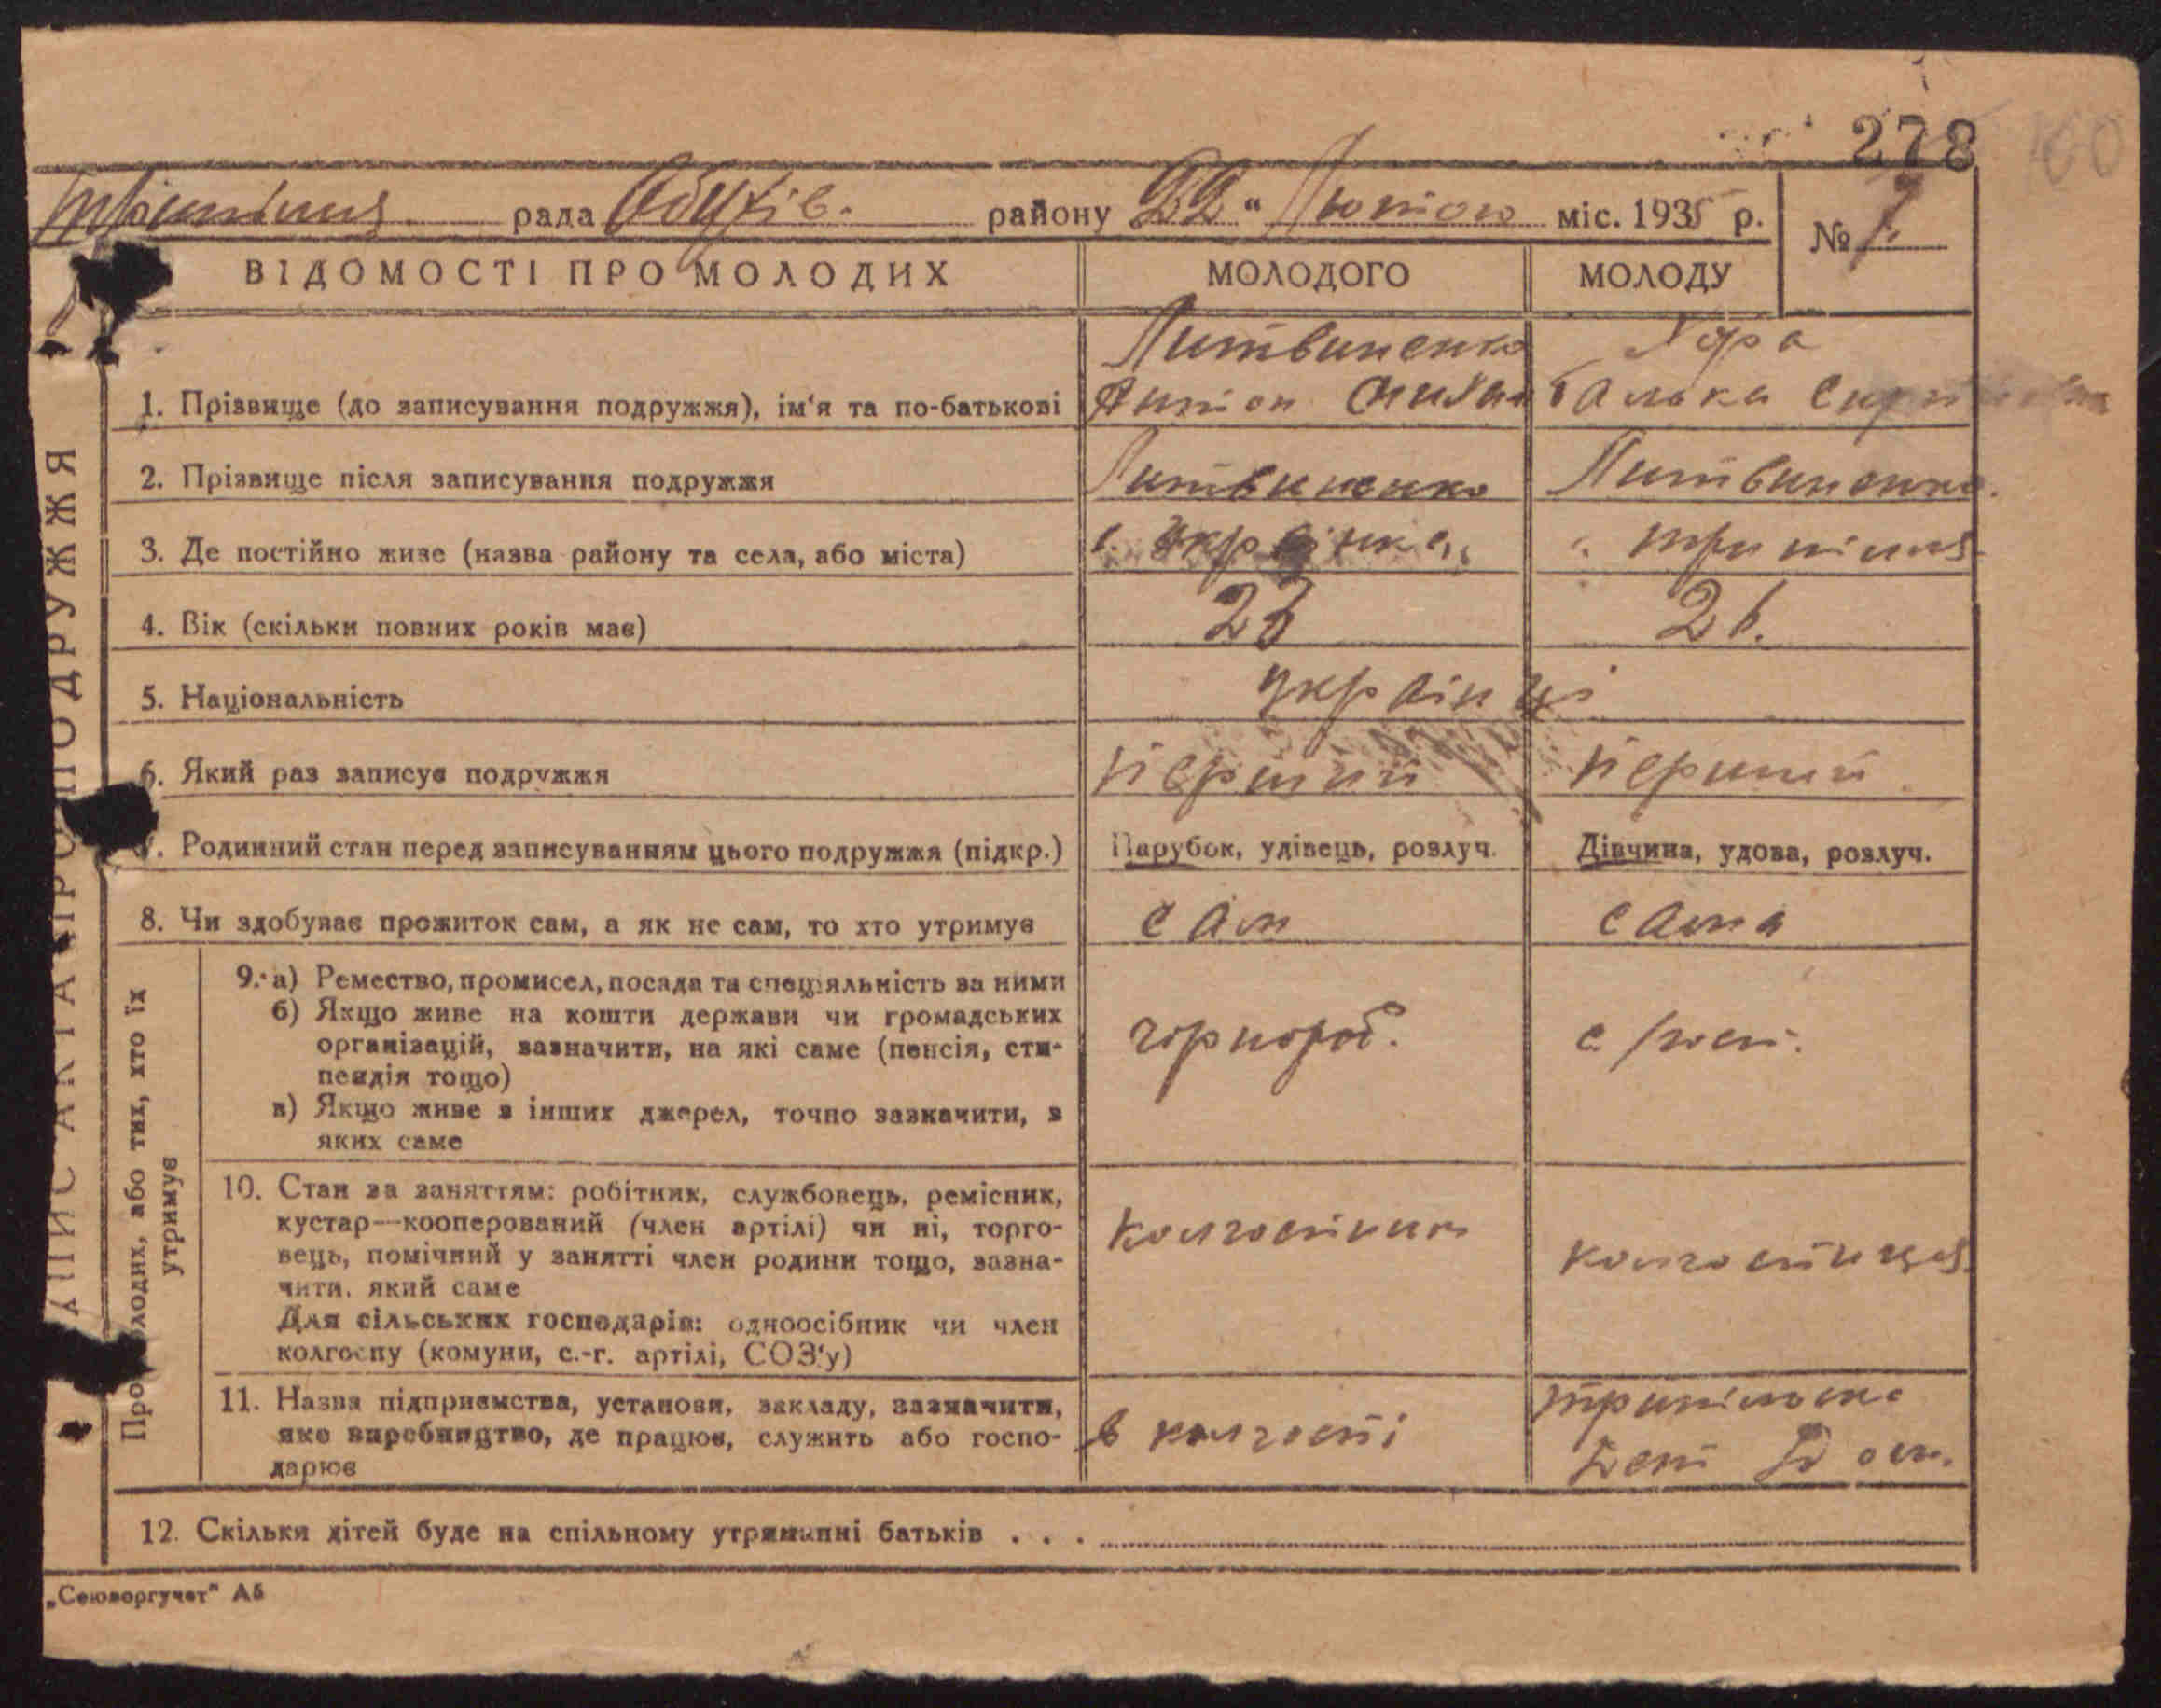 278
Трипільця рада Обухів. району 22 " Лютого міс. 1935 р.
№ 7.
ВІДОМОСТІ ПРО МОЛОДИХ МОЛОДОГО МОЛОДУ
Литвиненко
1. Прізвище (до записування подружжя), ім'я та по-батькові Антон
2. Прізвище після записування подружжя Литвиненко Литвиненко.
3. Де постійно живе (назва району та села, або міста) с. Українка,
4. Вік (скільки повних років має) 23 26.
5. Національність українці
6. Який раз записує подружжя перший перший.
7. Родинний стан перед записуванням цього подружжя (підкр.) Парубок, удівець, розлуч. Дівчина, удова, розлуч.
8. Чи здобуває прожиток сам, а як не сам, то хто утримує сам сама
9. а) Ремество, промисел, посада та спеціяльність за ними
б) Якщо живе на кошти держави чи громадських
організацій, зазначити, на які саме (пенсія, сти-
пендія тощо)
чорнороб.
в) Якщо живе з інших джерел, точно зазначити, з
яких саме
10. Стан за заняттям: робітник, службовець, ремісник,
кустар—кооперований (член артілі) чи ні, торго-
вець, помічний у занятті член родини тощо, зазна-
чити, який саме
Для сільських господарів: одноосібник чи член
колгоспу (комуни, с.-г. артілі, СОЗ'у)
колгоспник колгоспниця
11. Назва підприємства, установи, закладу, зазначити,
яке виробництво, де працює, служить або госпо-
дарює
в колгоспі
12. Скільки дітей буде на спільному утриманні батьків . . .
"Союзоргучет" А5
ЗАПИС АКТА ПРО ПОДРУЖЖЯ
Про молодих, або тих, хто їх
утримує